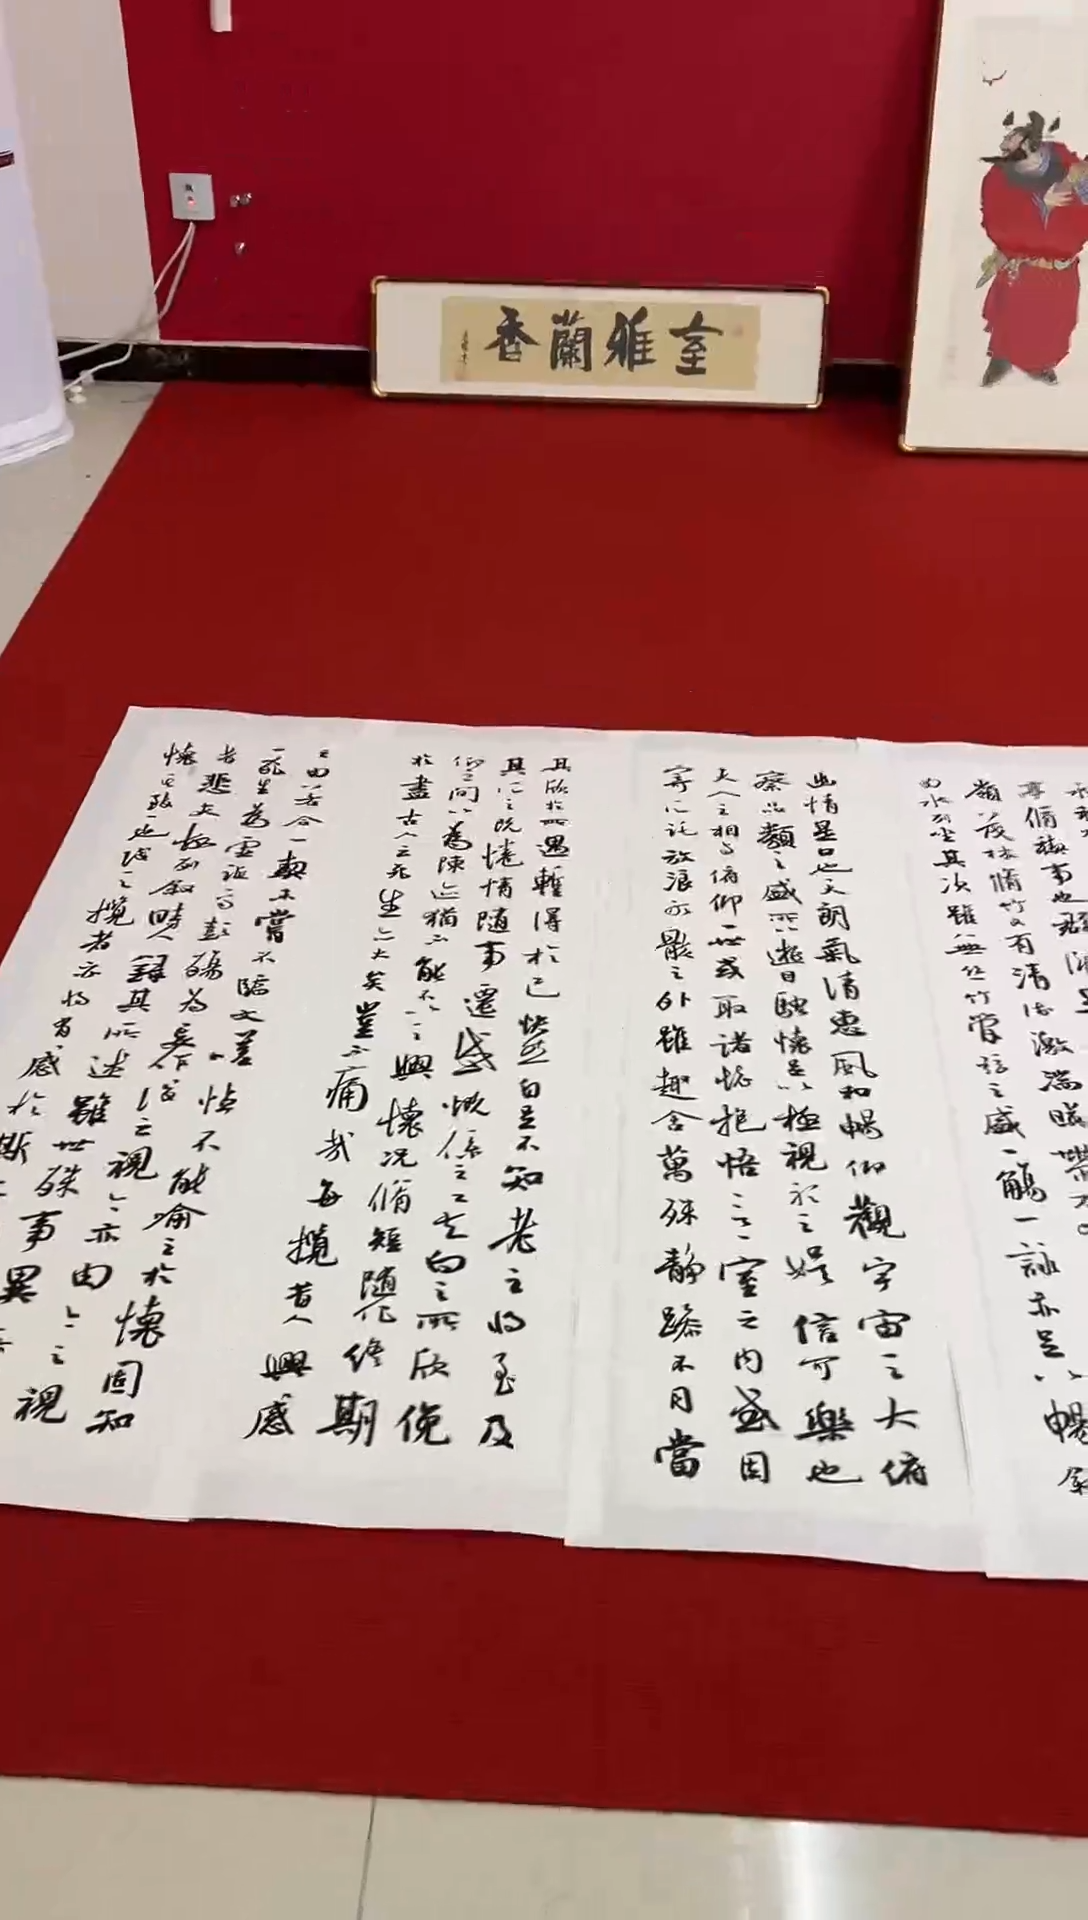 室雅蘭香
亭脩禊事也群
嶺茂林脩竹又有清流激湍暎帶左右
曲水列坐其次雖無絲竹管弦之盛一觴一詠亦足以暢敘
幽情是日也天朗氣清惠風和暢仰觀宇宙之大俯
察品類之盛所以遊目騁懷足以極視聽之娛信可樂也
夫人之相與俯仰一世或取諸懷抱悟言一室之內或因
寄所託放浪形骸之外雖趣舍萬殊靜躁不同當
其欣於所遇暫得於己快然自足不知老之將至及
其所之既惓情隨事遷感慨係之矣向之所欣俛
仰之間以為陳迹猶不能不以之興懷況脩短隨化終期
於盡古人云死生亦大矣豈不痛哉每攬昔人興感
之由若合一契未嘗不臨文嗟悼不能喻之於懷固知
一死生為虛誕齊彭殤為妄作後之視今亦由今之視
昔悲夫故列敘時人錄其所述雖世殊事異
懷其致一也後之攬者亦將有感於斯